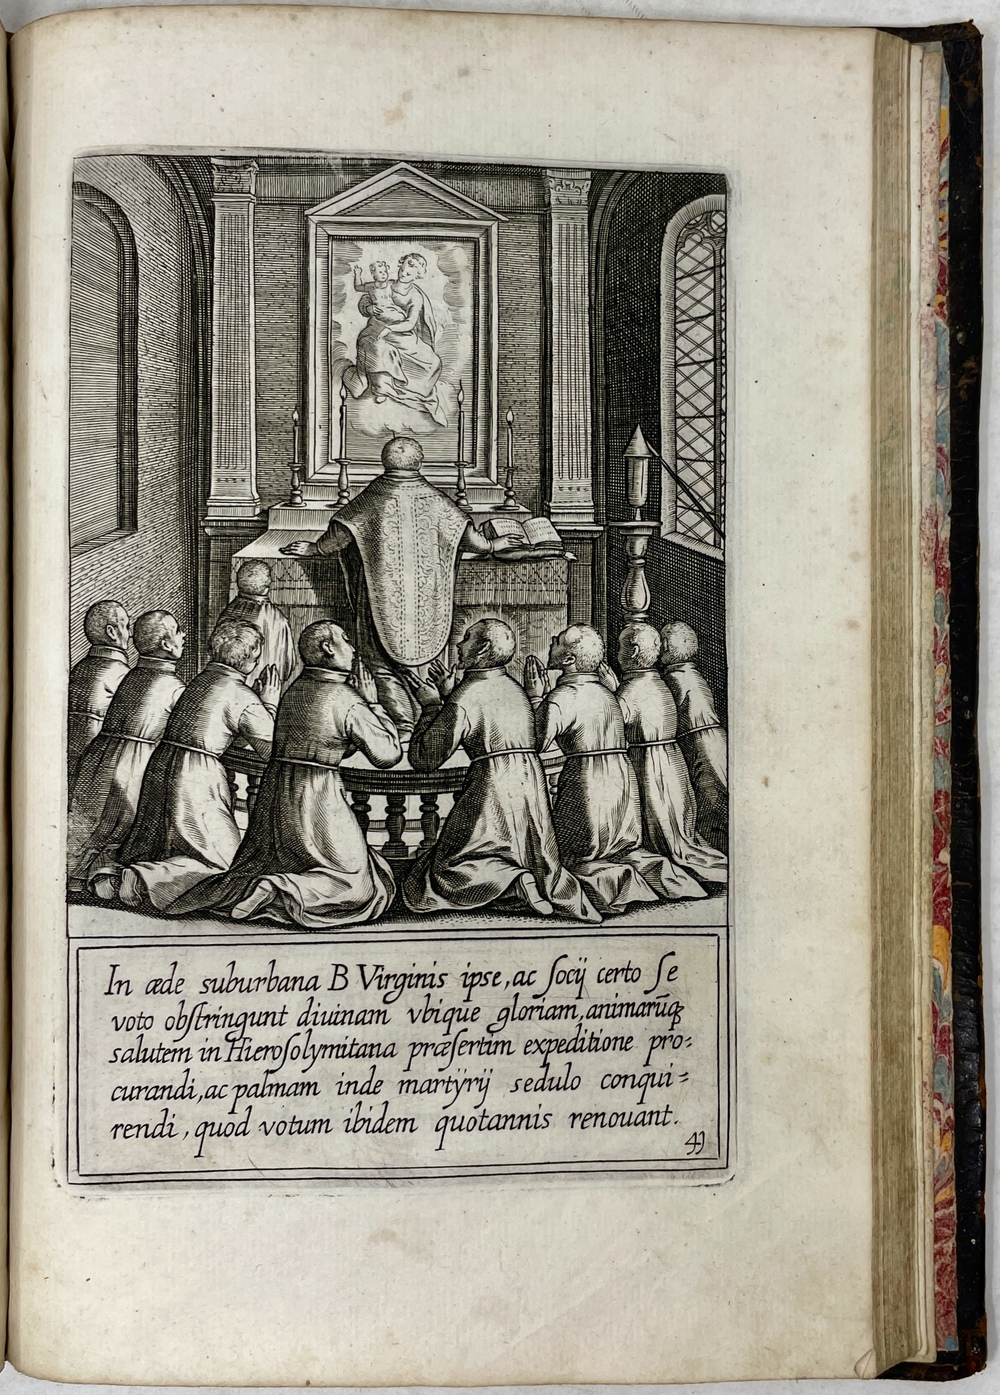 In æde suburbana B Virginis ipse, ac ſocij certo ſe
voto obſtringunt diuinam vbique gloriam, animarūq;
salutem in Hieroſolymitana præſertim expeditione pro:
curandi, ac palmam inde martÿrij sedulo conqui=
rendi, quod votum ibidem quotannis renouant.
49